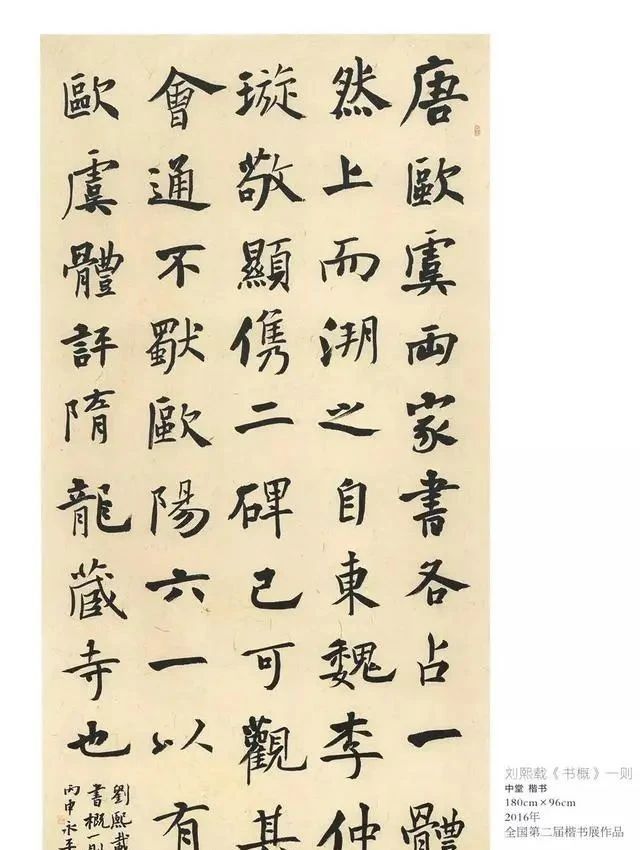 唐歐虞兩家書各占一體
然上而溯之自東魏李仲
璇敬顯儁二碑已可觀其
會通不獨歐陽六一以有
歐虞體評隋龍藏寺也
劉熙載
書概一則
丙申永
刘熙载《书概》一则
中堂 楷书
180cm×96cm
2016年
全国第二届楷书展作品